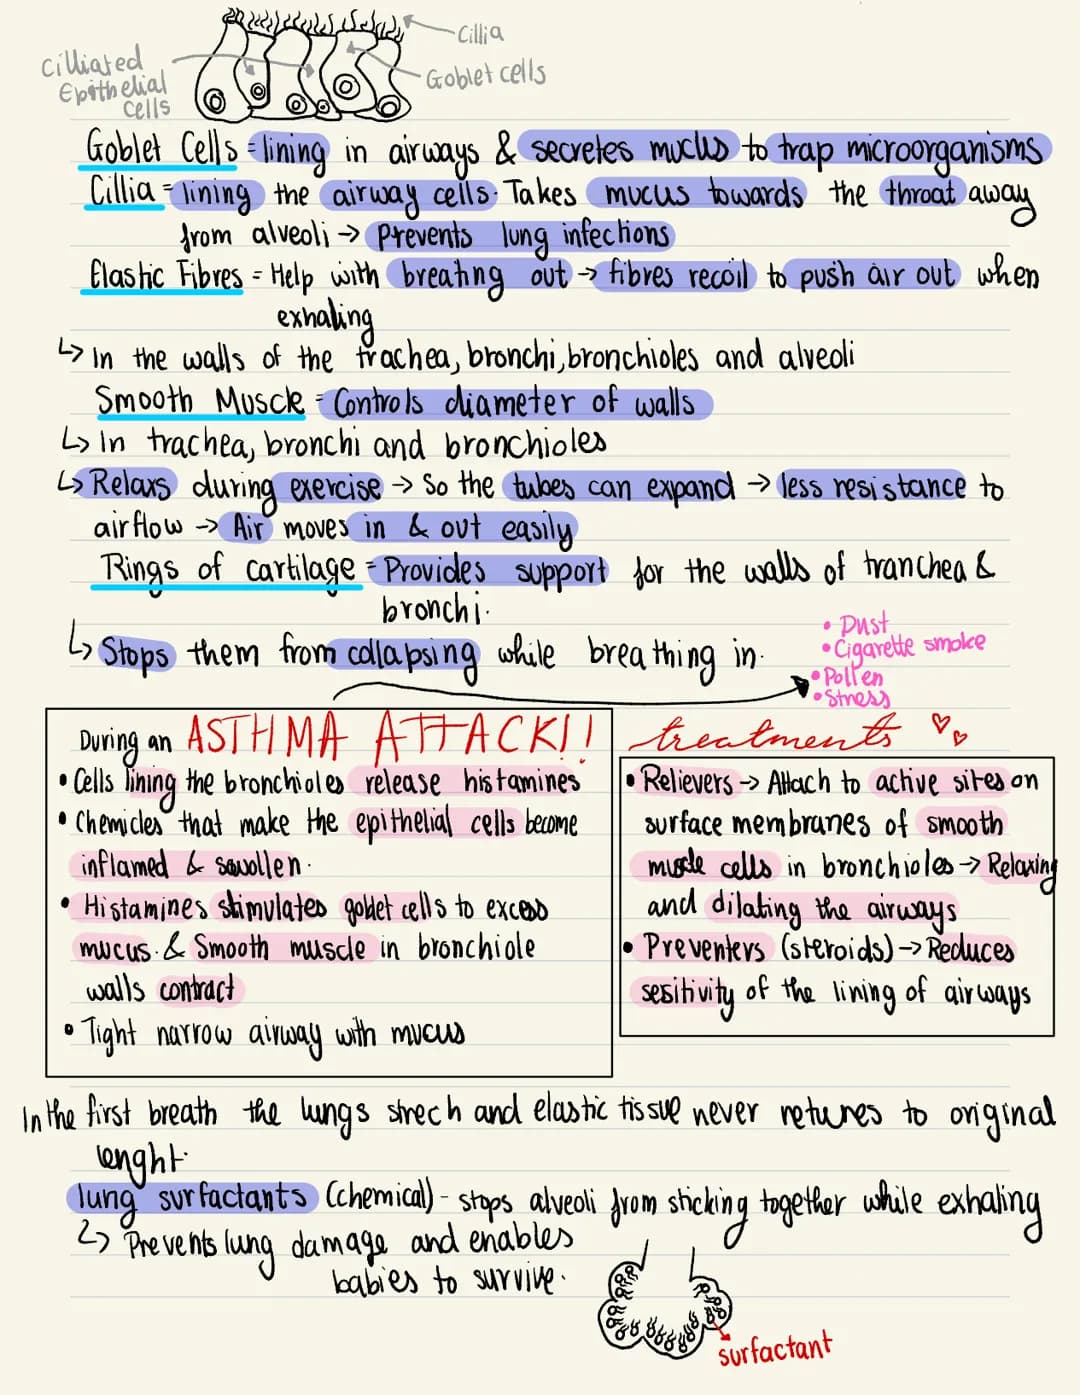 Cillia
Cilliated
Epithelial
Cells
Goblet cells
Goblet Cells = lining in airways & secretes mucus to trap microorganisms
Cillia = lining the airway cells. Takes mucus towards the throat away
from alveoli → Prevents lung infections
Elastic Fibres = Help with breathng out → fibres recoil to push air out when
exhaling
↳ In the walls of the trachea, bronchi, bronchioles and alveoli
Smooth Muscle = Controls diameter of walls
↳ In trachea, bronchi and bronchioles
↳ Relaxs during exercise → So the tubes can expand → less resistance to
airflow → Air moves in & out easily
Rings of cartilage = Provides support for the walls of tranchea &
bronchi.
↳ Stops them from collapsing while breathing in.
• Dust
• Cigarette smoke
• Pollen
• Stress
During an ASTHMA ATTACK!!
• Cells lining the bronchioles release histamines
• Chemicles that make the epithelial cells become
inflamed & sewollen.
• Histamines stimulates goblet cells to excess
mucus. & Smooth muscle in bronchiole
walls contract
• Tight narrow airway with mucus
treatments ♡♡
• Relievers → Attach to active sites on
surface membranes of smooth
muscle cells in bronchioles → Relaxing
and dilating the airways
• Preventers (steroids) → Reduces
sesitivity of the lining of airways
In the first breath the lungs strech and elastic tissue never retures to original
lenght.
lung surfactants (chemical) - stops alveoli from sticking together while exhaling
↳ Prevents lung damage and enables
babies to survive.
surfactant